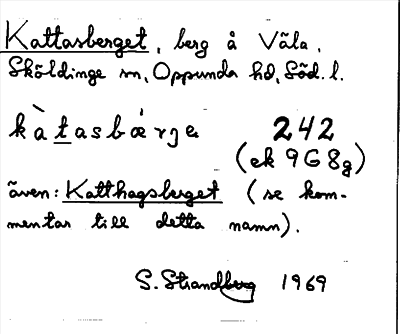 Kattasberget, berg å Väla,
Sköldinge sn, Oppunda hd, Söd. l.
kàtasbǽrjɛ 242
(ek 9G8g)
även: Katthagsberget (se kom-
mentar till detta namn).
S. Strandberg 1969